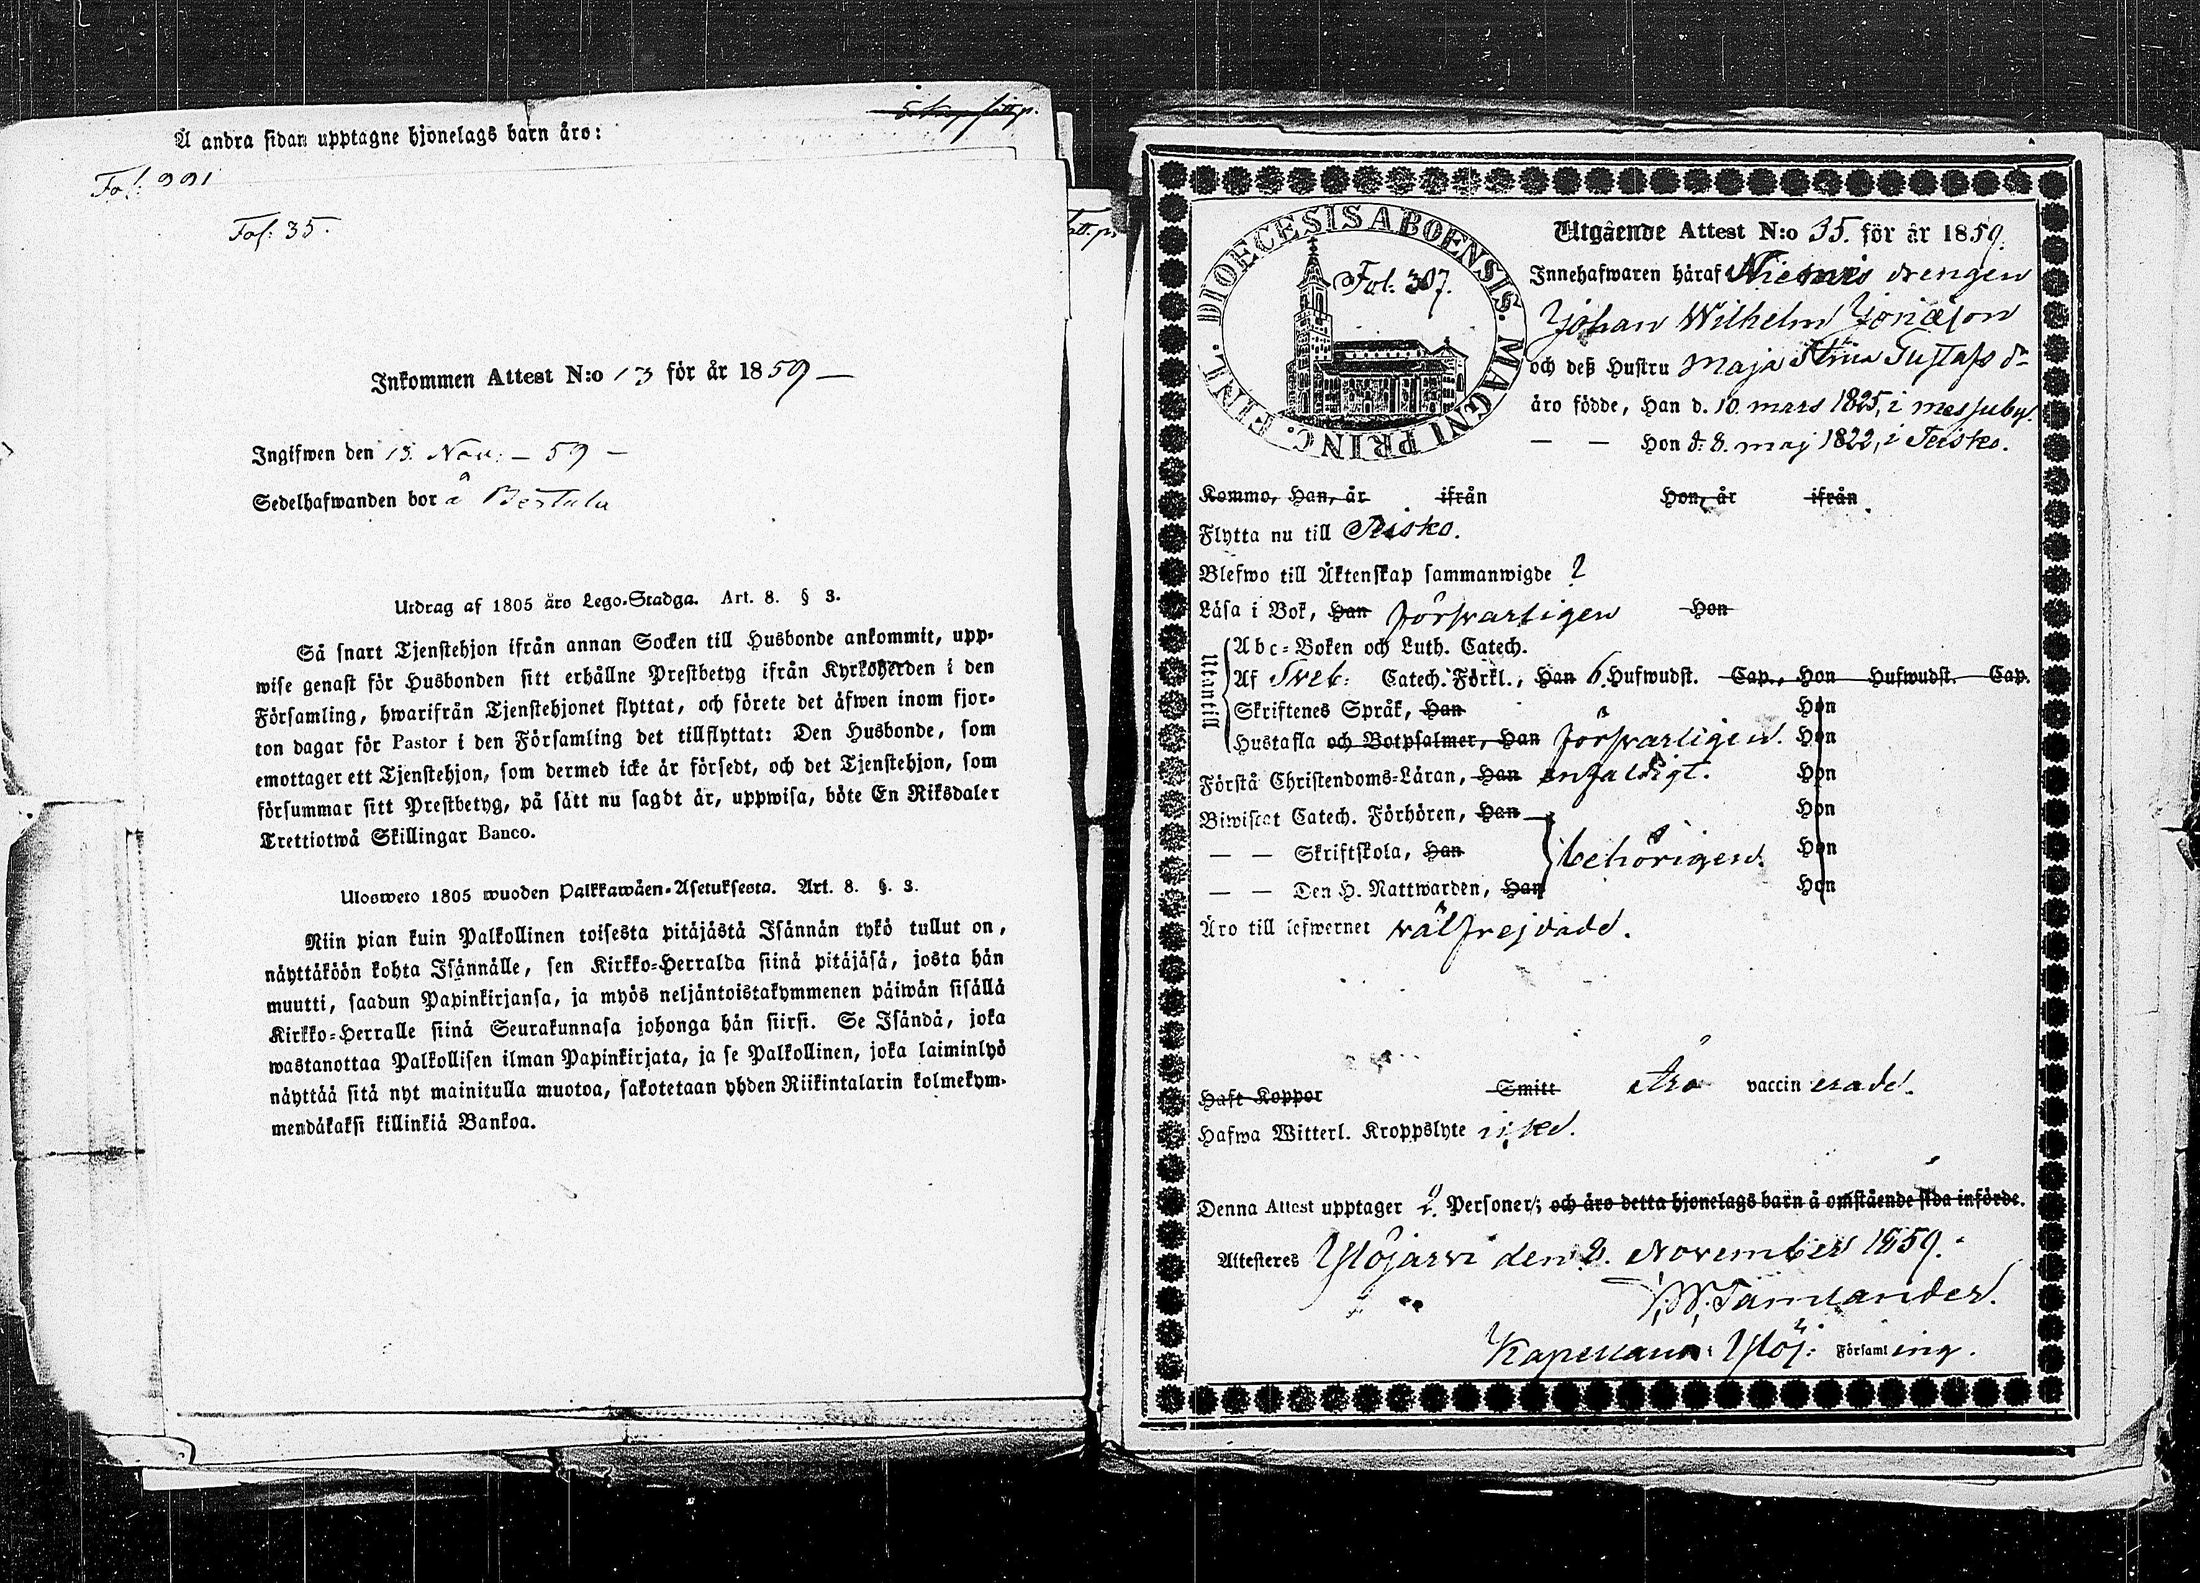 Å andra sidan upptagne hjonelags barn äro:
Fol: 991
Fol: 35.
Inkommen Attest N:o 13 för år 1859 —
Ingifwen den 13. Nov: – 59 –
Sedelhafwanden bor å
Utdrag af 1805 års Lego-Stadga. Art. 8. § 3.
Så snart Tjenstehjon ifrån annan Socken till Husbonde ankommit, upp-
wise genast för Husbonden sitt erhållne Prestbetyg ifrån Kyrkoherden i den
Församling, hwarifrån Tjenstehjonet flyttat, och förete det äfwen inom fjor-
ton dagar för Pastor i den Församling det tillflyttat: Den Husbonde, som
emottager ett Tjenstehjon, som dermed icke är försedt, och det Tjenstehjon, som
försummar sitt Prestbetyg, på sätt nu sagdt är, uppwisa, böte En Riksdaler
Trettiotwå Skillingar Banco.
Ulosweto 1805 wuoden Palkkawäen-Asetuksesta. Art. 8. §. 3.
Niin pian kuin Palkollinen toisesta pitäjästä Isännän tykö tullut on,
näyttäköön kohta Isännälle, sen Kirkko-Herralda siinä pitäjäsä, josta hän
muutti, saadun Papinkirjansa, ja myös neljäntoistakymmenen päiwän sisällä
Kirkko-Herralle siinä Seurakunnasa johonga hän siirsi. Se Isändä, joka
wastanottaa Palkollisen ilman Papinkirjata, ja se Palkollinen, joka laiminlyö
näyttää sitä nyt mainitulla muotoa, sakotetaan yhden Riikintalarin kolmekym-
mendäkaksi killinkiä Bankoa.
DIOECESIS ABOENSIS. MAGNI PRINC. FINL.
Fol. 307.
Utgående Attest N:o 35. för år 1859.
Innehafwaren häraf Niemis drengen
Johan Wilhelm Jonasson
och deß Hustru Maja Stina Gustafs dr
äro födde, Han d. 10. mars 1825, i messuby.
— — Hon d. 8. maj 1822, i Teisko.
Komme, Han, år ifrån Hon, år ifrån
Flytta nu till Teisko.
Blefwo till Äktenskap sammanwigde ?
Läsa i Bok, Han förswarligen Hon
Utantill
Abc-Boken och Luth. Catech.
Af Sveb: Catech. Förkl., Han 6. Hufwudst. Cap., Hon Hufwudst. Cap.
Skriftenes Språk, Han Hon
Hustafla och Botpsalmer, Han förswarligen. Hon
Förstå Christendoms-Läran, Han enfaldigt. Hon
Biwistat Catech. Förhören, Han Hon
— — Skriftskola, Han behörigen. Hon
— — Den H. Nattwarden, Han Hon
Äro till lefwernet wälfrejdade.
Haft Koppor Smitt Äro vaccinerade.
Hafwa Witterl. Kroppslyte icke.
Denna Attest upptager 2. Personer; och äro detta hjonelags barn å omstående sida införde.
Attesteres Ylöjärvi den 2. November 1859.
Kapellan i Ylöj: Församling.